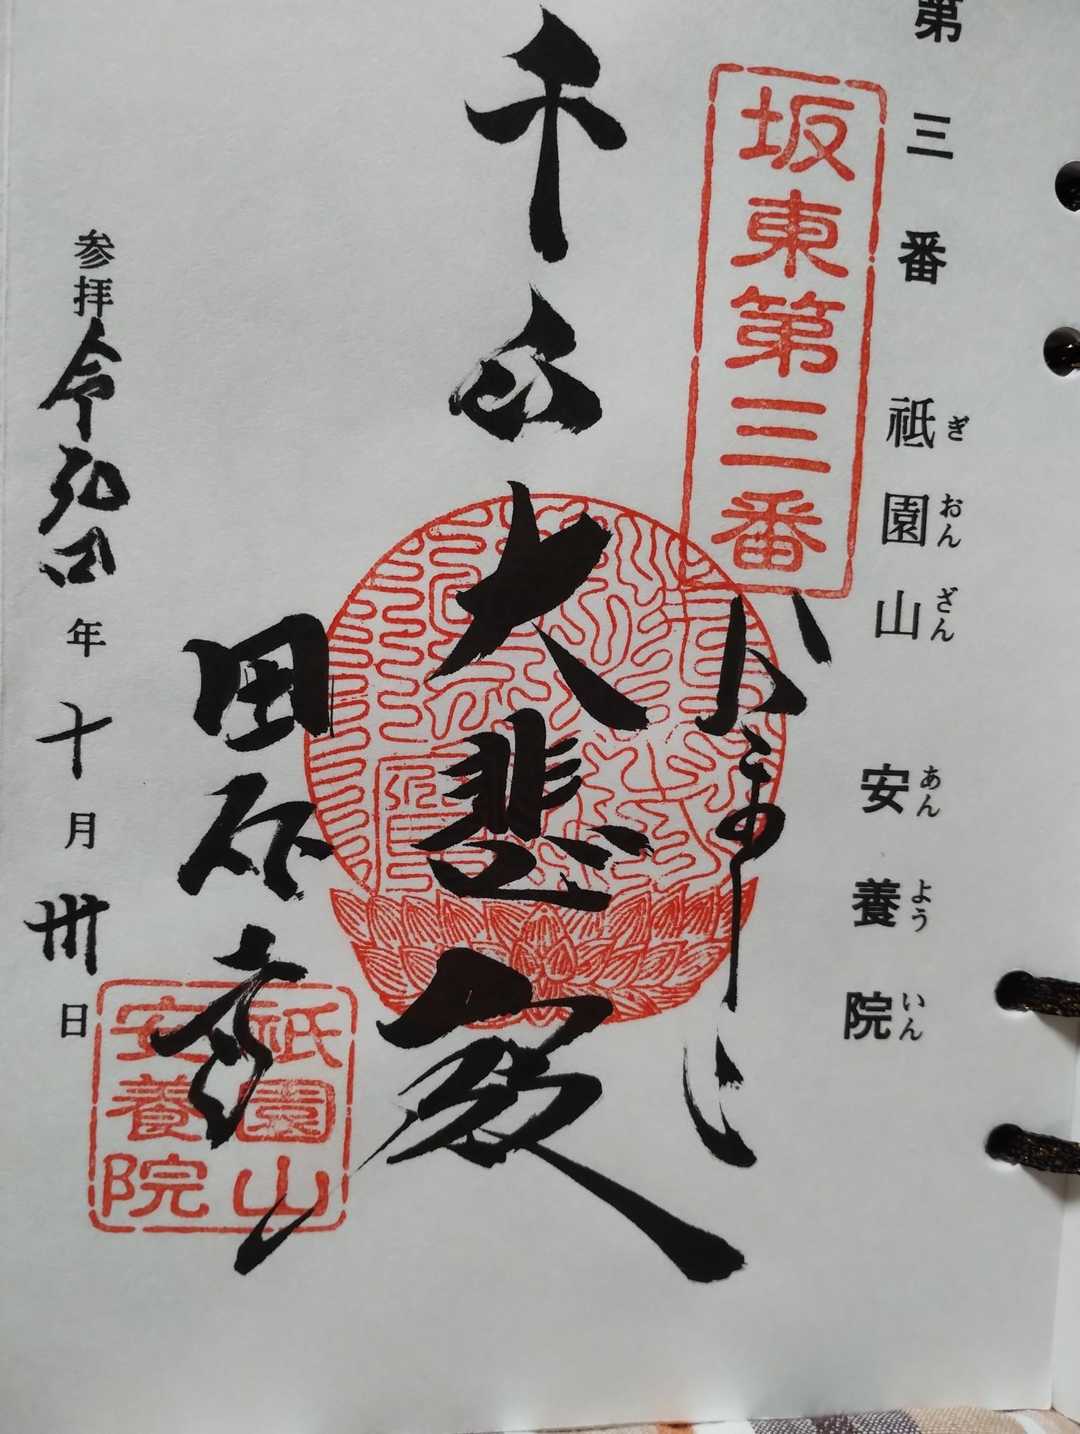 第三番　祇園山　安養院
ぎおんざん　あんよういん
坂東第三番
かまくら
千手大悲殿
田代寺
祇園山
安養院
参拝令和四年十月卅日